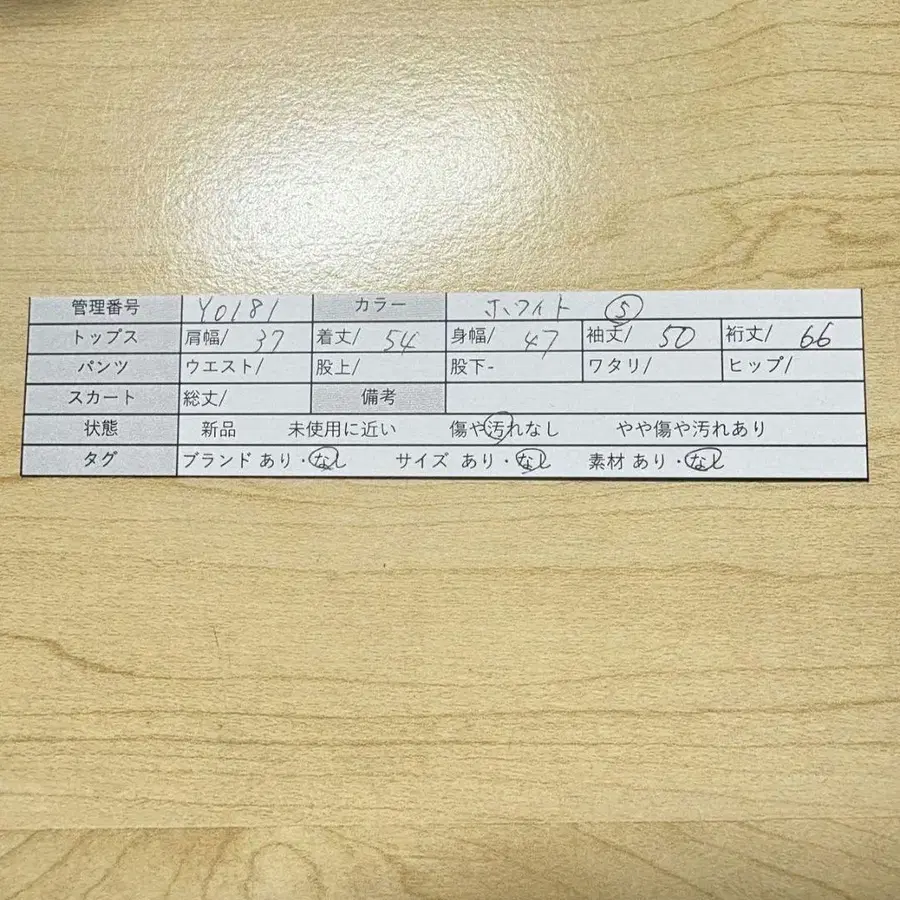 管理番号 Y0181 カラー ホワイト S
トップス 肩幅/ 37 着丈/ 54 身幅/ 47 袖丈/ 50 裄丈/ 66
パンツ ウエスト/ 股上/ 股下- ワタリ/ ヒップ/
スカート 総丈/ 備考
状態 新品 未使用に近い 傷や汚れなし やや傷や汚れあり
タグ ブランド あり・なし サイズ あり・なし 素材 あり・なし